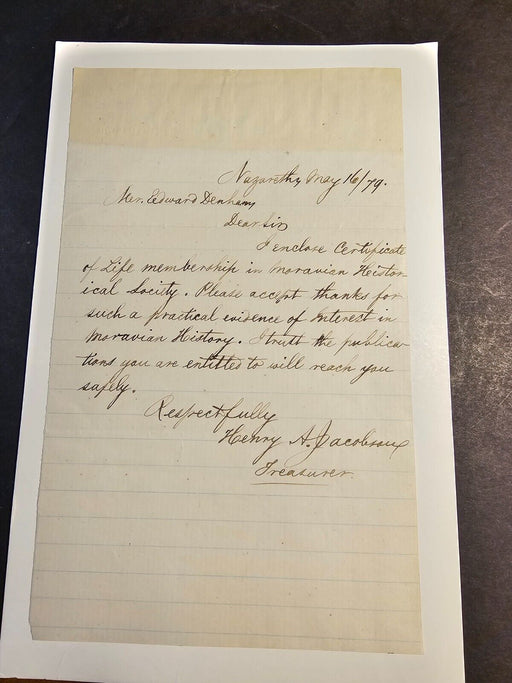 Nazareth, May 16/79.
Mr. Edward Denham
Dear Sir
I enclose Certificate
of Life membership in Moravian Histor-
ical Society. Please accept thanks for
such a practical evidence of interest in
Moravian History. I trust the publica-
tions you are entitled to will reach you
safely.
Respectfully
Henry A. Jacobson
Treasurer.